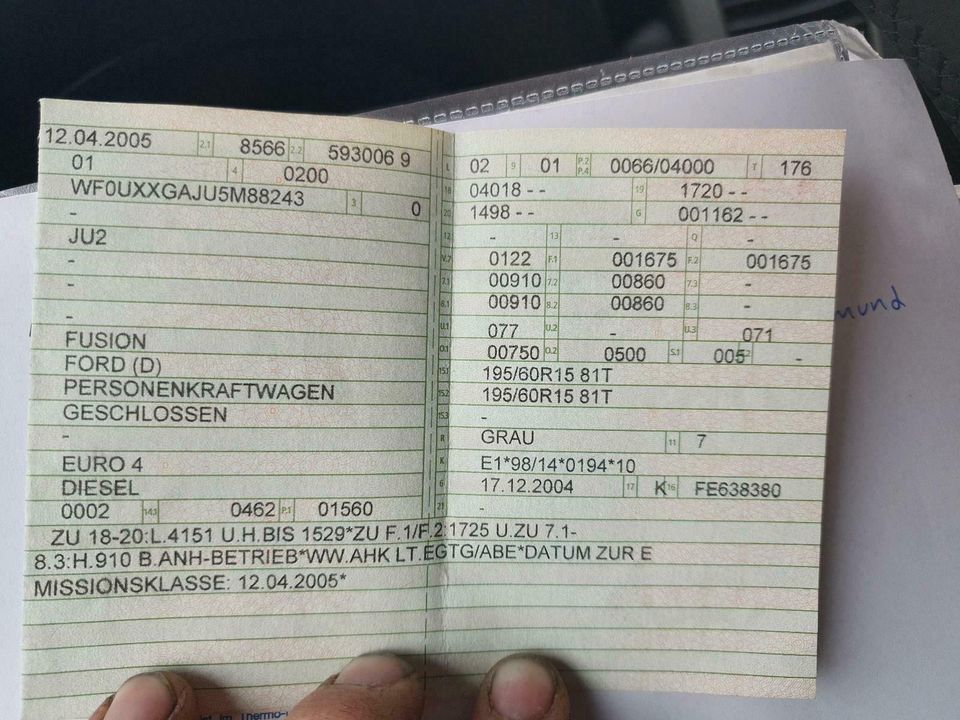 12.04.2005 2.1 8566 2.2 593006 9
01 4 0200
WF0UXXGAJU5M88243 3 0
-
JU2
-
-
-
FUSION
FORD (D)
PERSONENKRAFTWAGEN
GESCHLOSSEN
-
EURO 4
DIESEL
0002 14.1 0462 P.1 01560
L 02 9 01 P.2 P.4 0066/04000 T 176
18 04018 - - 19 1720 - -
20 1498 - - G 001162 - -
12 - 13 - Q -
V.7 0122 F.1 001675 F.2 001675
7.1 00910 7.2 00860 7.3 -
8.1 00910 8.2 00860 8.3 -
U.1 077 U.2 - U.3 071
O.1 00750 O.2 0500 S.1 005 S.2 -
15.1 195/60R15 81T
15.2 195/60R15 81T
15.3 -
R GRAU 11 7
K E1*98/14*0194*10
6 17.12.2004 17 K 16 FE638380
21 -
ZU 18-20:L.4151 U.H.BIS 1529*ZU F.1/F.2:1725 U.ZU 7.1-
8.3:H.910 B.ANH-BETRIEB*WW.AHK LT.EGTG/ABE*DATUM ZUR E
MISSIONSKLASSE: 12.04.2005*